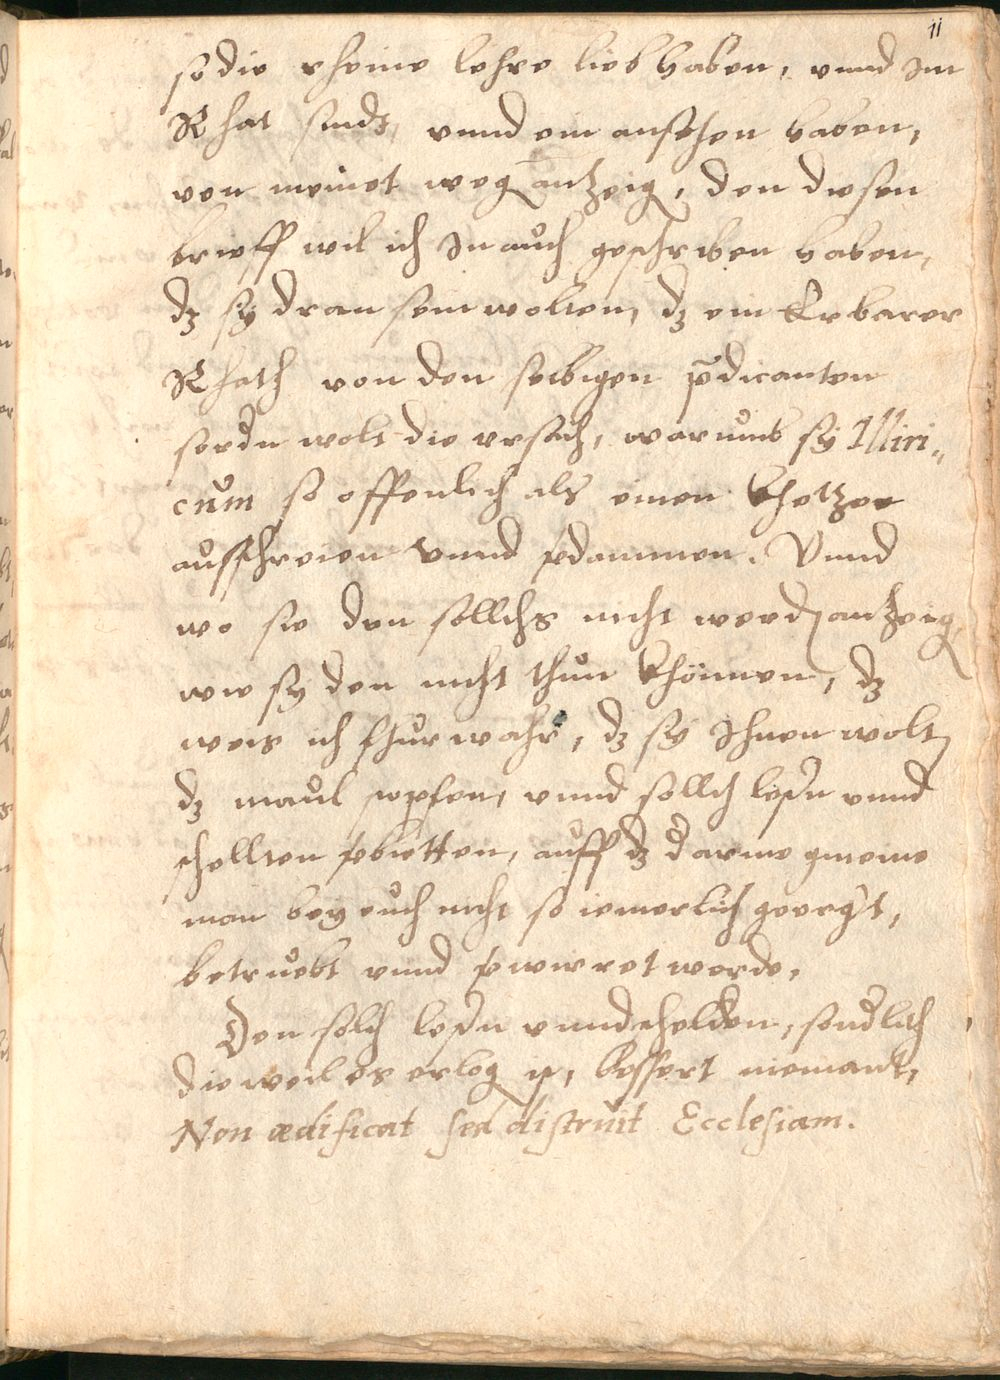 11
so die rheine lehre lieb haben, vnnd im
Rhat sindt, vnnd ein ansehen haben,
von meinet weg antzeig, den diesen
brieff wil ich In auch geschriben haben,
dz sy dran sein wolten, dz ein Erbarer
Rhath von den selbigen p̄dicanten
fordn wolt die vrsach, warumb sy Illiri„
cum so offenlich als einen khetzer
ausschreien vnnd vdammen. Vnnd
wo sie den sollichs nicht werdn antzeig,
wie sy den nicht thun khönnen, dz
weis ich fhurwahr, dz sy Ihnen wolt
dz maul stopfen, vnnd sollch lestn vnnd
schellten vbietten, auff dz d arme gmeine
man bey euch nicht so iemerlich geergt,
betruebt vnnd vwirret werde,
Den solch lestn vnnd schelden, sondlich
die weil es erlog ist, bessert niemant,
Non ædificat sed distruit Ecclesiam.